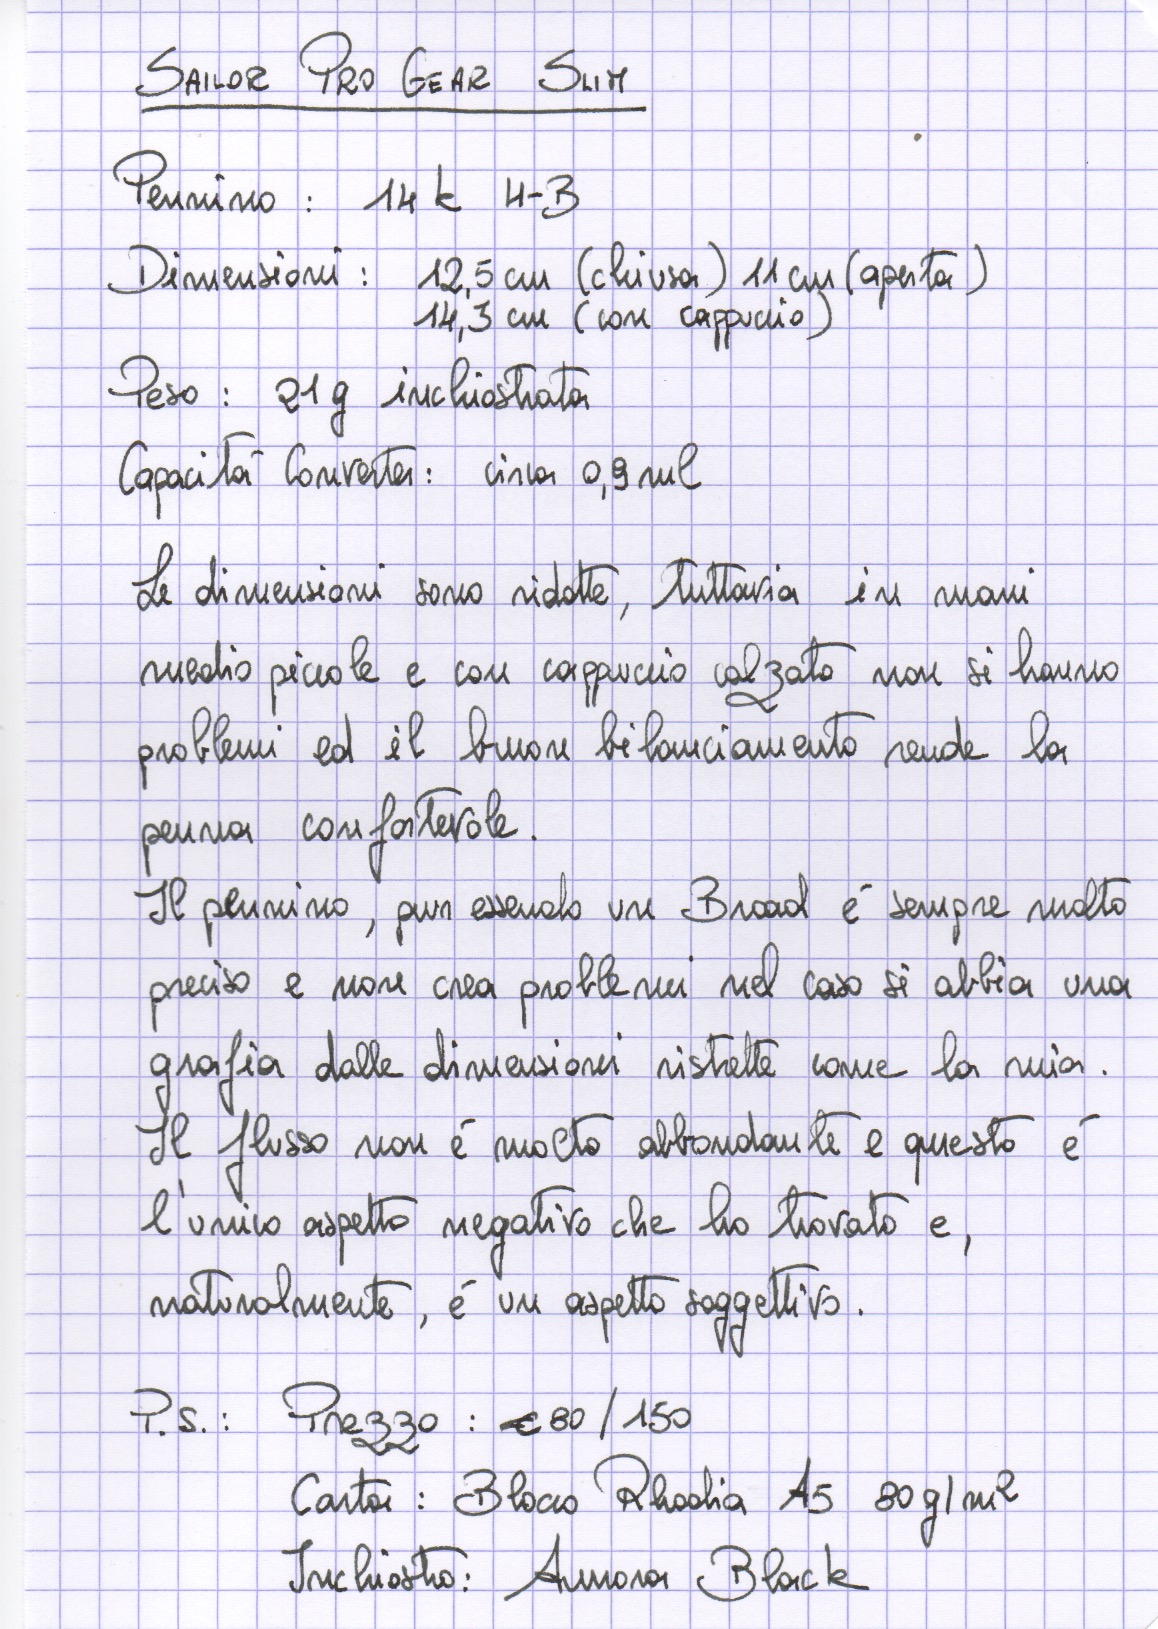 SAILOR PRO GEAR SLIM
Pennino : 14k H-B
Dimensioni : 12,5 cm (chiusa) 11 cm (aperta)
14,3 cm (con cappuccio)
Peso : 21 g inchiostrata
Capacità Converter : circa 0,9 ml
Le dimensioni sono ridotte, tuttavia in mani
medio piccole e con cappuccio calzato non si hanno
problemi ed il buon bilanciamento rende la
penna confortevole.
Il pennino, pur essendo un Broad é sempre molto
preciso e non crea problemi nel caso si abbia una
grafia dalle dimensioni ristrette come la mia.
Il flusso non é molto abbondante e questo é
l'unico aspetto negativo che ho trovato e,
naturalmente, é un aspetto soggettivo.
P.S.: Prezzo : €80/150
Carta : Blocco Rhodia A5 80 g/m²
Inchiostro : Aurora Black